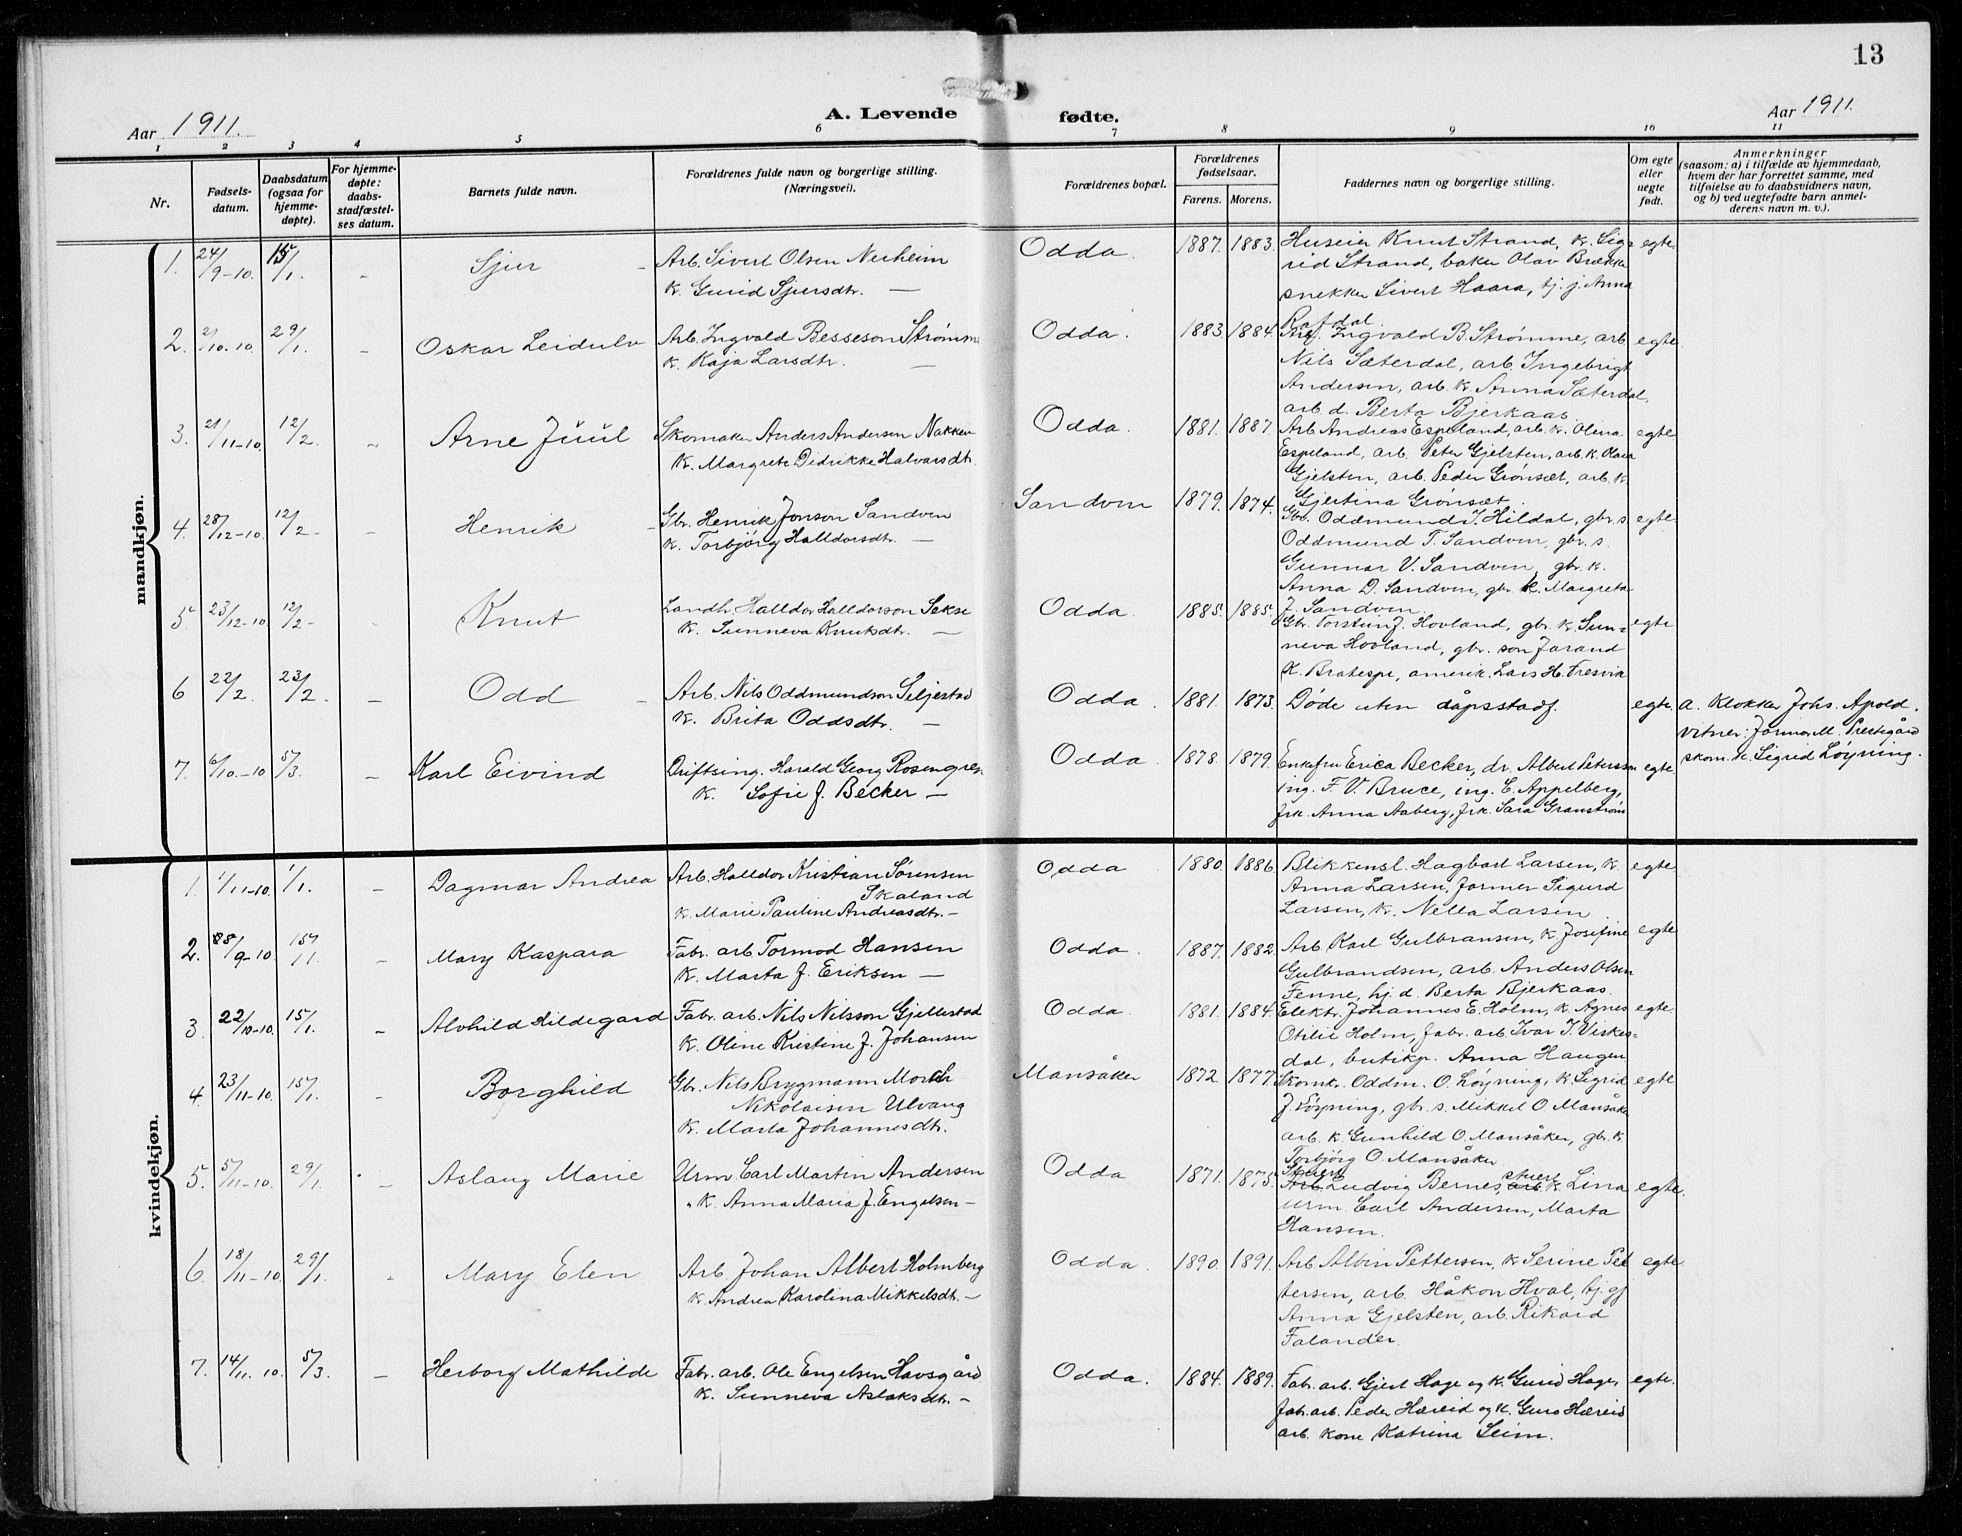 13
Aar 1911.
A. Levende fødte.
Aar 1911.
1 2 3 4 5 6 7 8 9 10 11
Nr.
Fødsels-
datum.
Daabsdatum
(ogsaa for
hjemme-
døpte).
For hjemme-
døpte:
daabs-
stadfæstel-
ses datum.
Barnets fulde navn.
Forældrenes fulde navn og borgerlige stilling.
(Næringsvei).
Forældrenes bopæl.
Forældrenes
fødselsaar.
Farens. Morens.
Faddernes navn og borgerlige stilling.
Om egte
eller
uegte
født.
Anmerkninger
(saasom: a) i tilfælde av hjemmedaab,
hvem der har forrettet samme, med
tilføielse av to daabsvidners navn,
og b) ved uegtefødte barn anmel-
derens navn m. v.).
mandkjøn.
1. 24/9-10. 15/1. - Sjur - Arb. Sivert Olsen Nerheim Odda. 1887. 1883. Huseier Knut Strand, K. Sig= egte
K. Gurid Sjursdtr. — rid Strand, baker Olav Brække
snekker Sivert Haara, tj. j. Anna
Rafdal.
2. 2/10.10 29/1. - Oskar Leidulv Arb. Ingvald Besseson Strømme Odda. 1883. 1884. Ingvald B. Strømme, arb. egte
K. Kaja Larsdtr. — Nils Sæterdal, arb. Ingebrigt
Andersen, arb. K. Anna Sæterdal,
arb. d. Berta Bjerkaas
3. 21/11-10. 12/2. - Arne Juul Skomaker Anders Andersen Nakken Odda. 1881. 1887. Arb. Andreas Espeland, arb. K. Olina egte
K. Margrete Didrikke Halvarsdtr. Espeland, arb. Peter Gjelsten, arb. K. Olava
Gjelsten, arb. Peder Grønsæt, arb. K.
Gjertina Grønsæt.
4. 28/12-10. 12/2- - Henrik - Gbr. Henrik Jonson Sandven Sandven 1879. 1874. Gbr. Oddmund J. Hildal, gbr. s. egte
K. Torbjørg Halldorsdtr. — Oddmund T. Sandven, gbr. s.
Gunnar V. Sandven, gbr. K.
Anna D. Sandven, gbr. K. Margreta
J. Sandven.
5. 23/12-10. 12/2- Knut Landh. Halldor Halldorson Sekse Odda. 1885. 1885. Gbr. Torstein J. Hovland, gbr. K. Sun= egte
K. Sunneva Knutsdtr. — neva Hovland, gbr. son Jarand
K. Bratespe, amerik. Lars H. Tresvik
6 22/2. 23/2. - Odd - Arb. Nils Oddmundson Seljestad Odda. 1881. 1873. Døde uten dåpsstadf. egte. a. Klokker Johs. Apold.
K. Brita Oddsdtr. — vitner: Jormor M. Prestegård
skom. K. Sigrid Løyning.
7. 6/10.-10 5/3. - Karl Eivind Driftsing. Harald Georg Rosengren Odda. 1878. 1879. Enkefru Erica Becker, dr. Albert Petersson egte
K. Sofie J. Becker — ing. F. V. Bruce, ing. E. Appelberg,
frk. Anna Aaberg, frk. Sara Granstrøm
kvindekjøn.
1. 1/11-10. 1/1. - Dagmar Andrea Arb. Halldor Kristian Sørensen Odda 1880. 1886. Blikkensl. Hagbart Larsen, K. egte
Skaland Anna Larsen, former Sigurd
K. Marie Pauline Andreasdtr. — Larsen, K. Nella Larsen
2. /9-10. 15/1. - Mary Kaspara Fabr. arb. Tormod Hansen Odda. 1887. 1882. Arb. Karl Gulbransen, K. Josefine egte
K. Marta J. Eriksen — Gulbrandsen, arb. Anders Olsen
Fenne, hj. d. Berta Bjerkaas.
3. 22/10-10. 15/1. - Alvhild Hildegard Fabr. arb. Nils Nilsson Gjellestad Odda. 1881. 1884. Elektr. Johannes E. Holm, K. Agnes egte
K. Oline Kristine J. Johansen Otilie Holm, fabr. arb. Ivar J. Virkes-
dal, butikp. Anna Haugen
4. 23/11-10. 15/1. - Borghild Gbr. Nils Brygmann Morch Mansåker 1872. 1877. Skomkr. Oddm. O. Løyning, K. Sigrid egte
Nikolaisen Ulvang J. Løyning, gbr. s. Mikkel O. Mansåker
K. Marta Johannesdtr. arb. K. Gunhild O. Mansåker, gbr. K.
Torbjørg O. Mansåker
5. 5/11-10. 29/1. - Aslaug Marie Urm. Carl Martin Andersen Odda 1871. 1875. Stuert Ludvig Bernes, stuert K. Lina egte.
K. Anna Maria J. Engelsen — urm. Carl Andersen, Marta
Hansen.
6. 18/11-10. 29/1. - Mary Elen Arb. Johan Albert Holmberg Odda. 1890. 1891. Arb. Albin Pettersen, K. Serine Pet egte
K. Andrea Karolina Mikkelsdtr. — tersen, arb. Håkon Hval, tj. gj
Anna Gjelsten, arb. Rikard
Falander.
7. 14/11-10. 5/3. - Herborg Mathilde Fabr. arb. Ole Engelsen Havsgård Odda. 1884. 1889. Fabr. arb. Gjert Hage og K. Gurid Hage, egte.
K. Sunneva Aslaksdtr. — fabr. arb. Peder Hæreid og K. Guro Hæreid
arb. kone Katrina Seim.